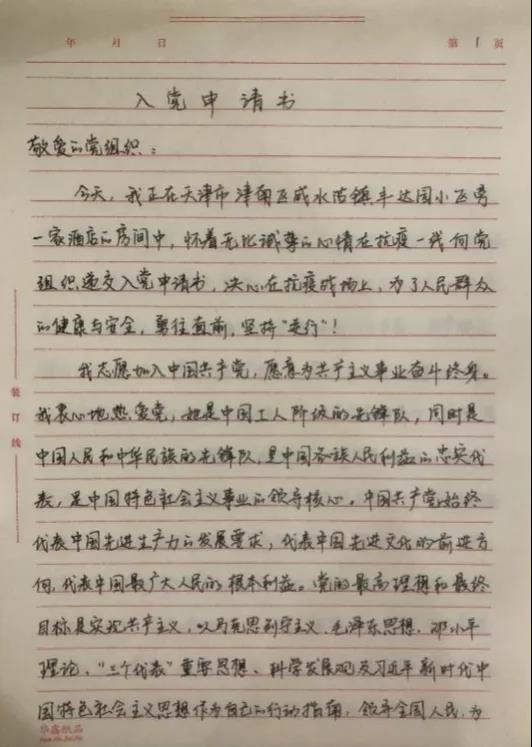 年 月 日 第 1 页
入党申请书
敬爱的党组织：
今天，我正在天津市津南区咸水沽镇丰达园小区旁
一家酒店的房间中，怀着无比诚挚的心情在抗疫一线向党
组织递交入党申请书，决心在抗疫战场上，为了人民群众
的健康与安全，勇往直前，坚持“逆行”！
我志愿加入中国共产党，愿意为共产主义事业奋斗终身。
我衷心地热爱党，她是中国工人阶级的先锋队，同时是
中国人民和中华民族的先锋队，是中国各族人民利益的忠实代
表，是中国特色社会主义事业的领导核心。中国共产党始终
代表中国先进生产力的发展要求，代表中国先进文化的前进方
向，代表中国最广大人民的根本利益。党的最高理想和最终
目标是实现共产主义，以马克思列宁主义、毛泽东思想、邓小平
理论、“三个代表”重要思想、科学发展观及习近平新时代中
国特色社会主义思想作为自己的行动指南，领导全国人民，为
装订线
华鑫纸品